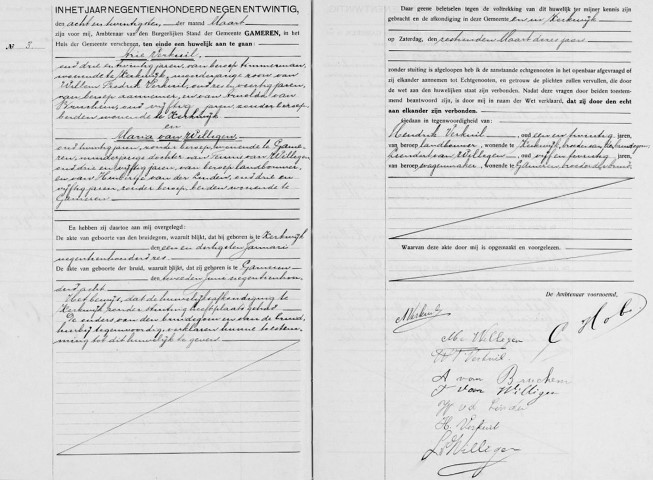 IN HET JAAR NEGENTIENHONDERD NEGEN EN TWINTIG,
den acht en twintigsten, der maand Maart
zijn voor mij, Ambtenaar van den Burgerlijken Stand der Gemeente GAMEREN, in het
Huis der Gemeente verschenen, ten einde een huwelijk aan te gaan:
No 3.
Arie Verkuil
oud drie en twintig jaren, van beroep timmerman,
wonende te Kerkwijk, meerderjarige zoon van
Willem Fredrik Verkuil, oud zestig jaren,
van beroep aannemer, en van
oud vijftig jaren, zonder beroep
beiden wonende te Kerkwijk
en
Maria van Willigen
oud twintig jaren, zonder beroep, wonende te Game-
ren, minderjarige dochter van Teunis van Willigen
oud drie en vijftig jaren, van beroep landbouwer,
en van van der Linden, oud drie en
vijftig jaren, zonder beroep beiden wonende te
Gameren
En hebben zij daartoe aan mij overgelegd:
De akte van geboorte van den bruidegom, waaruit blijkt, dat hij geboren is te Kerkwijk
den een en dertigsten Januari
negentienhonderd zes
De akte van geboorte der bruid, waaruit blijkt, dat zij geboren is te Gameren
den tweeden Juni negentienhon-
derd acht
Het bewijs, dat de huwelijksafkondiging te
Kerkwijk zonder stuiting heeft plaats gehad
De ouders van den bruidegom en van de bruid,
hierbij tegenwoordig, verklaren hunne toestem-
ming tot dit huwelijk te geven
Daar geene beletselen tegen de voltrekking van dit huwelijk ter mijner kennis zijn
gebracht en de afkondiging in deze Gemeente en in Kerkwijk
op Zaterdag, den zestienden Maart dezes jaars
zonder stuiting is afgeloopen heb ik de aanstaande echtgenooten in het openbaar afgevraagd of
zij elkander aannemen tot Echtgenooten, en getrouw de plichten zullen vervullen, die door
de wet aan den huwelijken staat zijn verbonden. Nadat deze vragen door beiden toestem-
mend beantwoord zijn, is door mij in naam der Wet verklaard, dat zij door den echt
aan elkander zijn verbonden.
Gedaan in tegenwoordigheid van:
Hendrik Verkuil, oud een en twintig jaren,
van beroep landbouwer, wonende te Kerkwijk, broeder van den bruidegom
van Willigen, oud vijf en twintig jaren,
van beroep wagenmaker, wonende te Gameren, broeder der bruid
Waarvan deze akte door mij is opgemaakt en voorgelezen.
De Ambtenaar voornoemd,
A Verkuil
M. v. Willigen
W F Verkuil
A van Bruchem
T van Willigen
vd Linden
H. Verkuil
Willigen